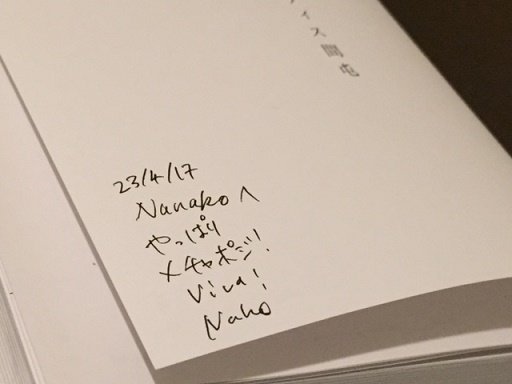 イス 闘 屯
23/4/17
Nanakoへ
やっぱり
メチャポジ!
Viva!
Naho